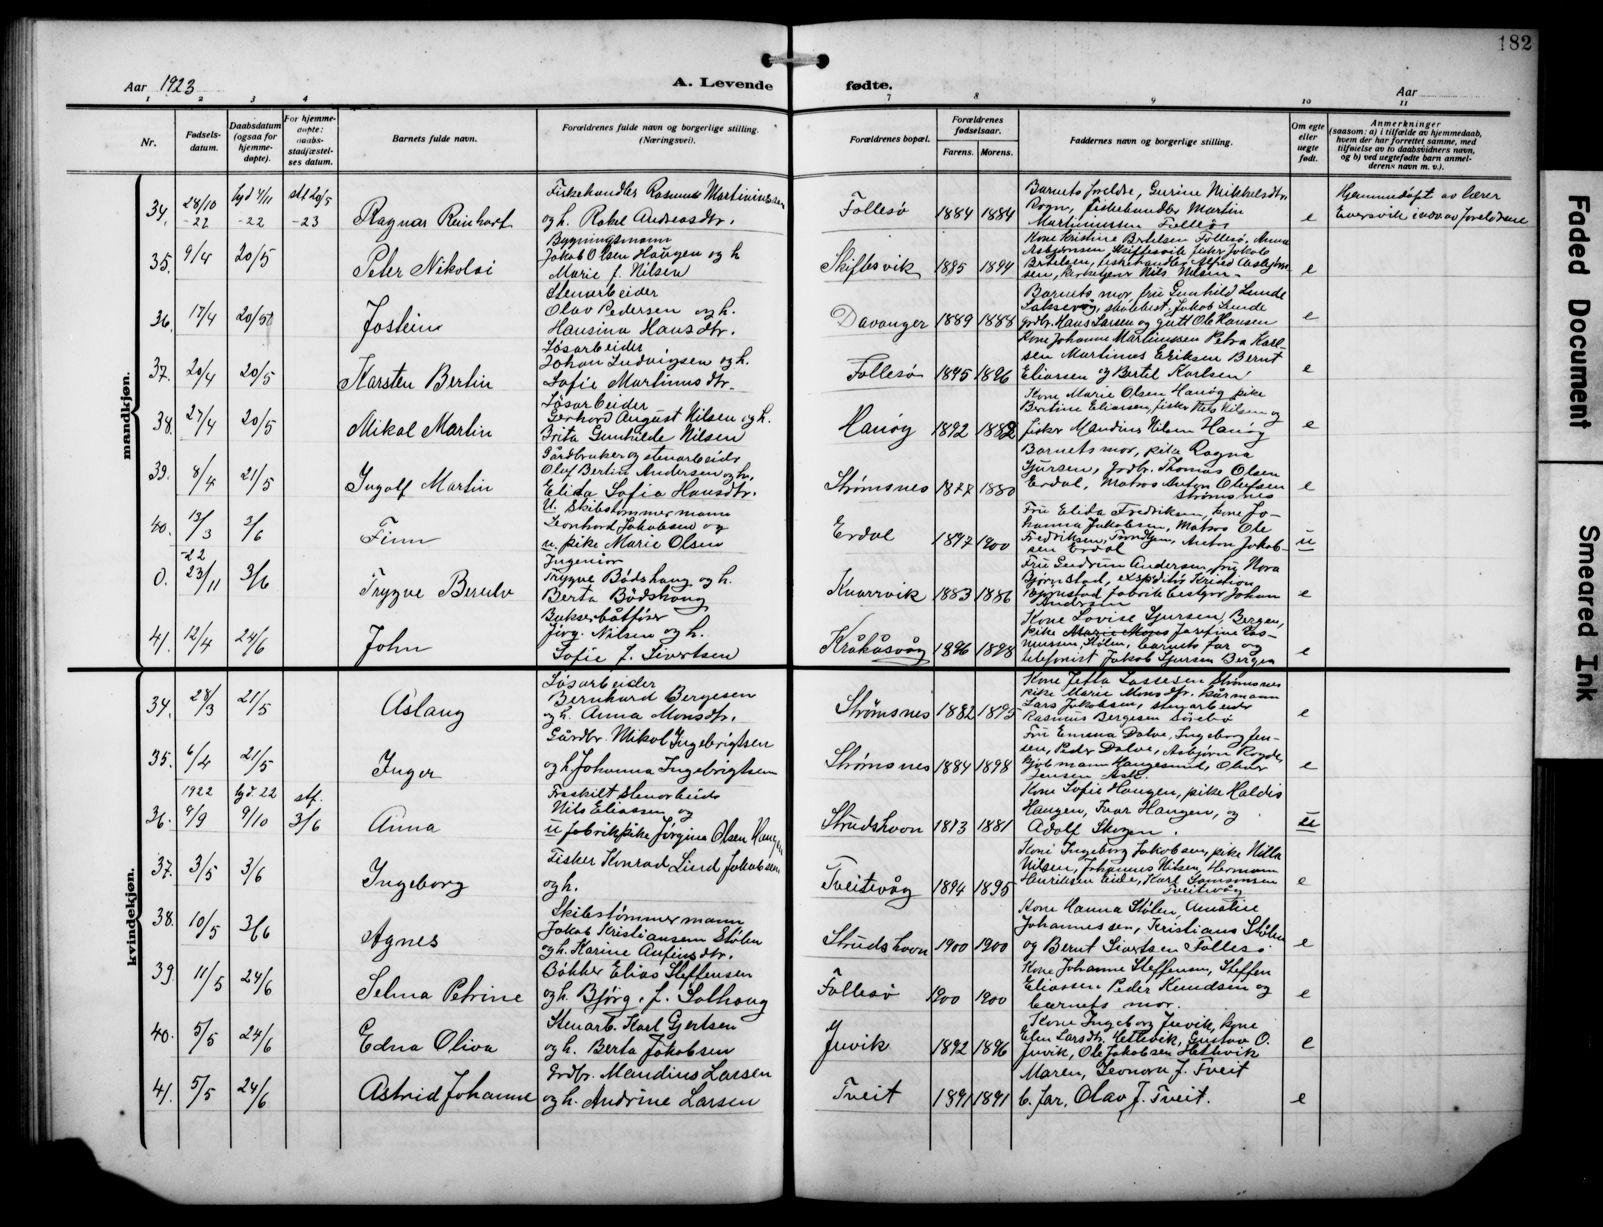 182
Aar 1923
A. Levende
fødte.
Aar
1 2 3 4 7 8 9 10 11
Nr.
Fødsels-
datum.
Daabsdatum
(ogsaa for
hjemme-
døpte).
For hjemme-
døpte:
daabs-
stadfæstel-
ses datum.
Barnets fulde navn.
Forældrenes fulde navn og borgerlige stilling.
(Næringsvei).
Forældrenes bopæl.
Forældrenes
fødselsaar.
Farens. Morens.
Faddernes navn og borgerlige stilling.
Om egte
eller
uegte
født.
Anmerkninger
(saasom: a) i tilfælde av hjemmedaab,
hvem der har forrettet samme, med
tilføielse av to daabsvidners navn,
og b) ved uegtefødte barn anmel-
derens navn m. v.).
mandkjøn.
34. 28/10 -22 hjd 4/11 -22 stf 20/5 -23 Ragnar Reinhart
Fiskehandler Rasmus Martinussen
og h. Rakel Andreasdtr.
Follesø 1884 1884
Barnets foreldre, Gurine Mikkelsdtr.
Rogn, fiskehandler Martin
Martinussen Follesø
e
Hjemmedøpt av lærer
Eversvik
35. 9/4 20/5 Peter Nikolai
Bygningsmann
Jakob Olsen Haugen og h
Marie f. Nilsen
Skiftesvik 1895 1894
Kone Kristine Bertelsen Follesø, Anna
Asbjørnsen, Skiftesvik fisker Jakob
Bertelsen, fiskehandler Alfred Asbjørn-
sen, kirketjener Nils Nilsen.
e
36. 17/4 20/5 Jostein
Stenarbeider
Olav Pedersen og h.
Hansina Hansdtr.
Davanger 1889 1888
Barnets mor, fru Gunhild Lunde
Laksevåg, skolebest. Jakob Lunde
grdbr. Hans Larsen og gutt Ole Hansen
e
37. 20/4 20/5 Karsten Bertin
Løsarbeider
Johan Ludvigsen og h.
Sofie Martinusdtr.
Follesø 1895 1896
Kone Johanne Martinussen Petra Karl-
sen Martinus Eriksen Bernt
Eliassen og Bertel Karlsen
e
38. 27/4 20/5 Mikal Martin
Løsarbeider
Gerhard August Nilsen og h.
Brita Gunhilde Nilsen
Hanøy 1892 1882
Kone Marie Olsen Hanøy pike
Bertine Eliassen, fisker Nils Nilsen og
fisker Mandius Nilsen Hanøy
e
39. 8/4 21/5 Ingolf Martin
Gårdbruker og stenarbeider
Oluf Bertin Andersen og h.
Elida Sofia Hansdtr.
Strømsnes 1877 1880
Barnets mor, pike Ragna
Gjersen, grdbr. Thomas Olsen
Erdal, Matros Anton Olufsen
Strømsnes
e
40. 13/3 3/6 Finn
U. Skibstømmermann
Leonhard Jakobsen og
u. pike Marie Olsen
Erdal 1897 1900
Fru Elida Fredriksen, kone Jo-
hanna Jakobsen, Matros Ole
Fredriksen, Anton Jakob-
sen Erdal
u
0. -22 23/11 3/6 Trygve Berulv
Ingeniør
Trygve Bødshaug og h.
Berta Bødshaug
Knarrvik 1883 1886
Fru Gudrun Andersen, frk Nora
Bjørnstad, expeditør Kristian
Bjørnstad, fabrikbestyrer Johan
Andersen
e
41. 12/4 24/6 John
Bukserbåtfører
Jørg. Nilsen og h.
Sofie f. Sivertsen
Kråkåsvåg 1896 1898
Kone Lovise Sjursen, Bergen,
pike Josefine Ras-
mussen Stølen, barnets far og
telefonist Jakob Sjursen Bergen
e
kvindekjøn.
34. 28/3 21/5 Aslaug
Løsarbeider
Bernhard Bergesen
og h. Anna Monsdtr.
Strømsnes 1882 1895
Kone Jetta Lassesen Strømsnes
pike Marie Monsdtr. kårmann
Lars Jakobsen, stenarbeider
Rasmus Bergesen Sørebø
e
35. 6/4 21/5 Inger
Gårdbr. Mikal Ingebrigtsen
og h. Johanna Ingebrigtsen
Strømsnes 1884 1898
Fru Emma Dalve, Ingeborg Jen-
sen, Peder Dalve, Asbjørn Rogde,
Kjøbmann Haugesund, Oliver
Jensen Ask.
e
36. 1922 9/9 hjd. 22 9/10 stf. 3/6 Anna
Fraskilt stenarbeider
Nils Eliassen og
u fabrikpike Jørgine Olsen Haugen
Strudshavn 1873 1881
Kone Sofie Haugen, pike Haldis
Haugen, Ivar Haugen, og
Adolf Skogen.
u
37. 3/5 3/6 Ingeborg
Fisker Konrad Lind Jakobsen
og h.
Tveitevåg 1894 1895
Kone Ingeborg Jakobsen, pike Milla
Nilsen, Johannes Nilsen, Hermann
Henriksen Eide, Karl Samsonsen
Tveitevåg
e
38. 10/5 3/6 Agnes
Skibstømmermann
Jakob Kristiansen Stølen
og h. Karine Anfinsdtr.
Strudshavn 1900 1900
Kone Hanna Stølen, Amalie
Johannessen, Kristians Stølen
og Bernt Sivertsen Follesø.
e
39. 11/5 24/6 Selma Petrine
Bøkker Elias Steffensen
og h. Bjørg. f. Solhaug
Follesø 1900 1900
Kone Johanne Steffensen, Steffen
Eliassen Peder Knudsen og
barnets mor.
e
40. 5/5 24/6 Edna Oliva
Stenarb. Karl Gjertsen
og h. Berta Jakobsen
Juvik 1892 1896
Kone Ingeborg Juvik, kone
Elen Larsdtr. Hetlevik, Gustav O.
Juvik, Ole Jakobsen Hetlevik
e
41. 5/5 24/6 Astrid Johanne
Grdbr. Mandius Larsen
og h. Andrine Larsen
Tveit 1891 1891
Maren, Leonora J. Tveit
b. far, Olav J. Tveit.
e
Faded Document
Smeared Ink